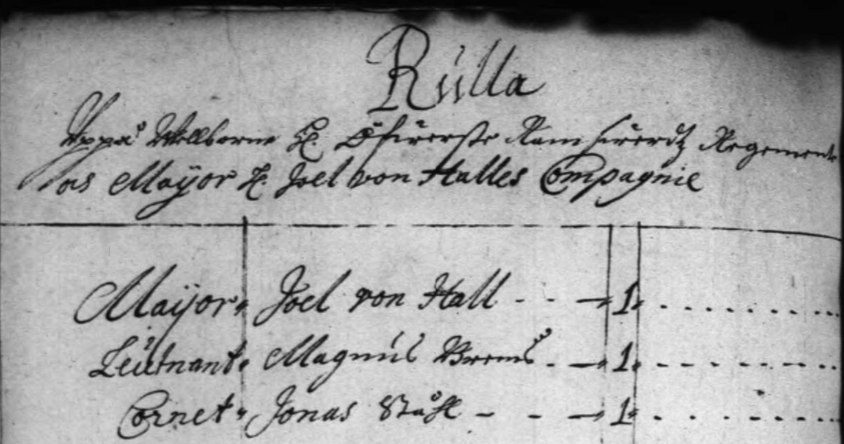 Rulla
Uppå Wellborne H. Öfwerste Ramswerdtz Regemente
as Maÿor H. Joel von Halles Compagnie
Maÿor Joel von Hall - - - 1
Leütnant Magnus - 1
Cornet Jonas Ståhl - - - 1